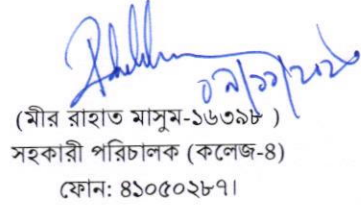 ০৯/১১/২০২০
(মীর রাহাত মাসুম-১৬৩৯৮ )
সহকারী পরিচালক (কলেজ-৪)
ফোন: ৪১০৫০২৮৭।